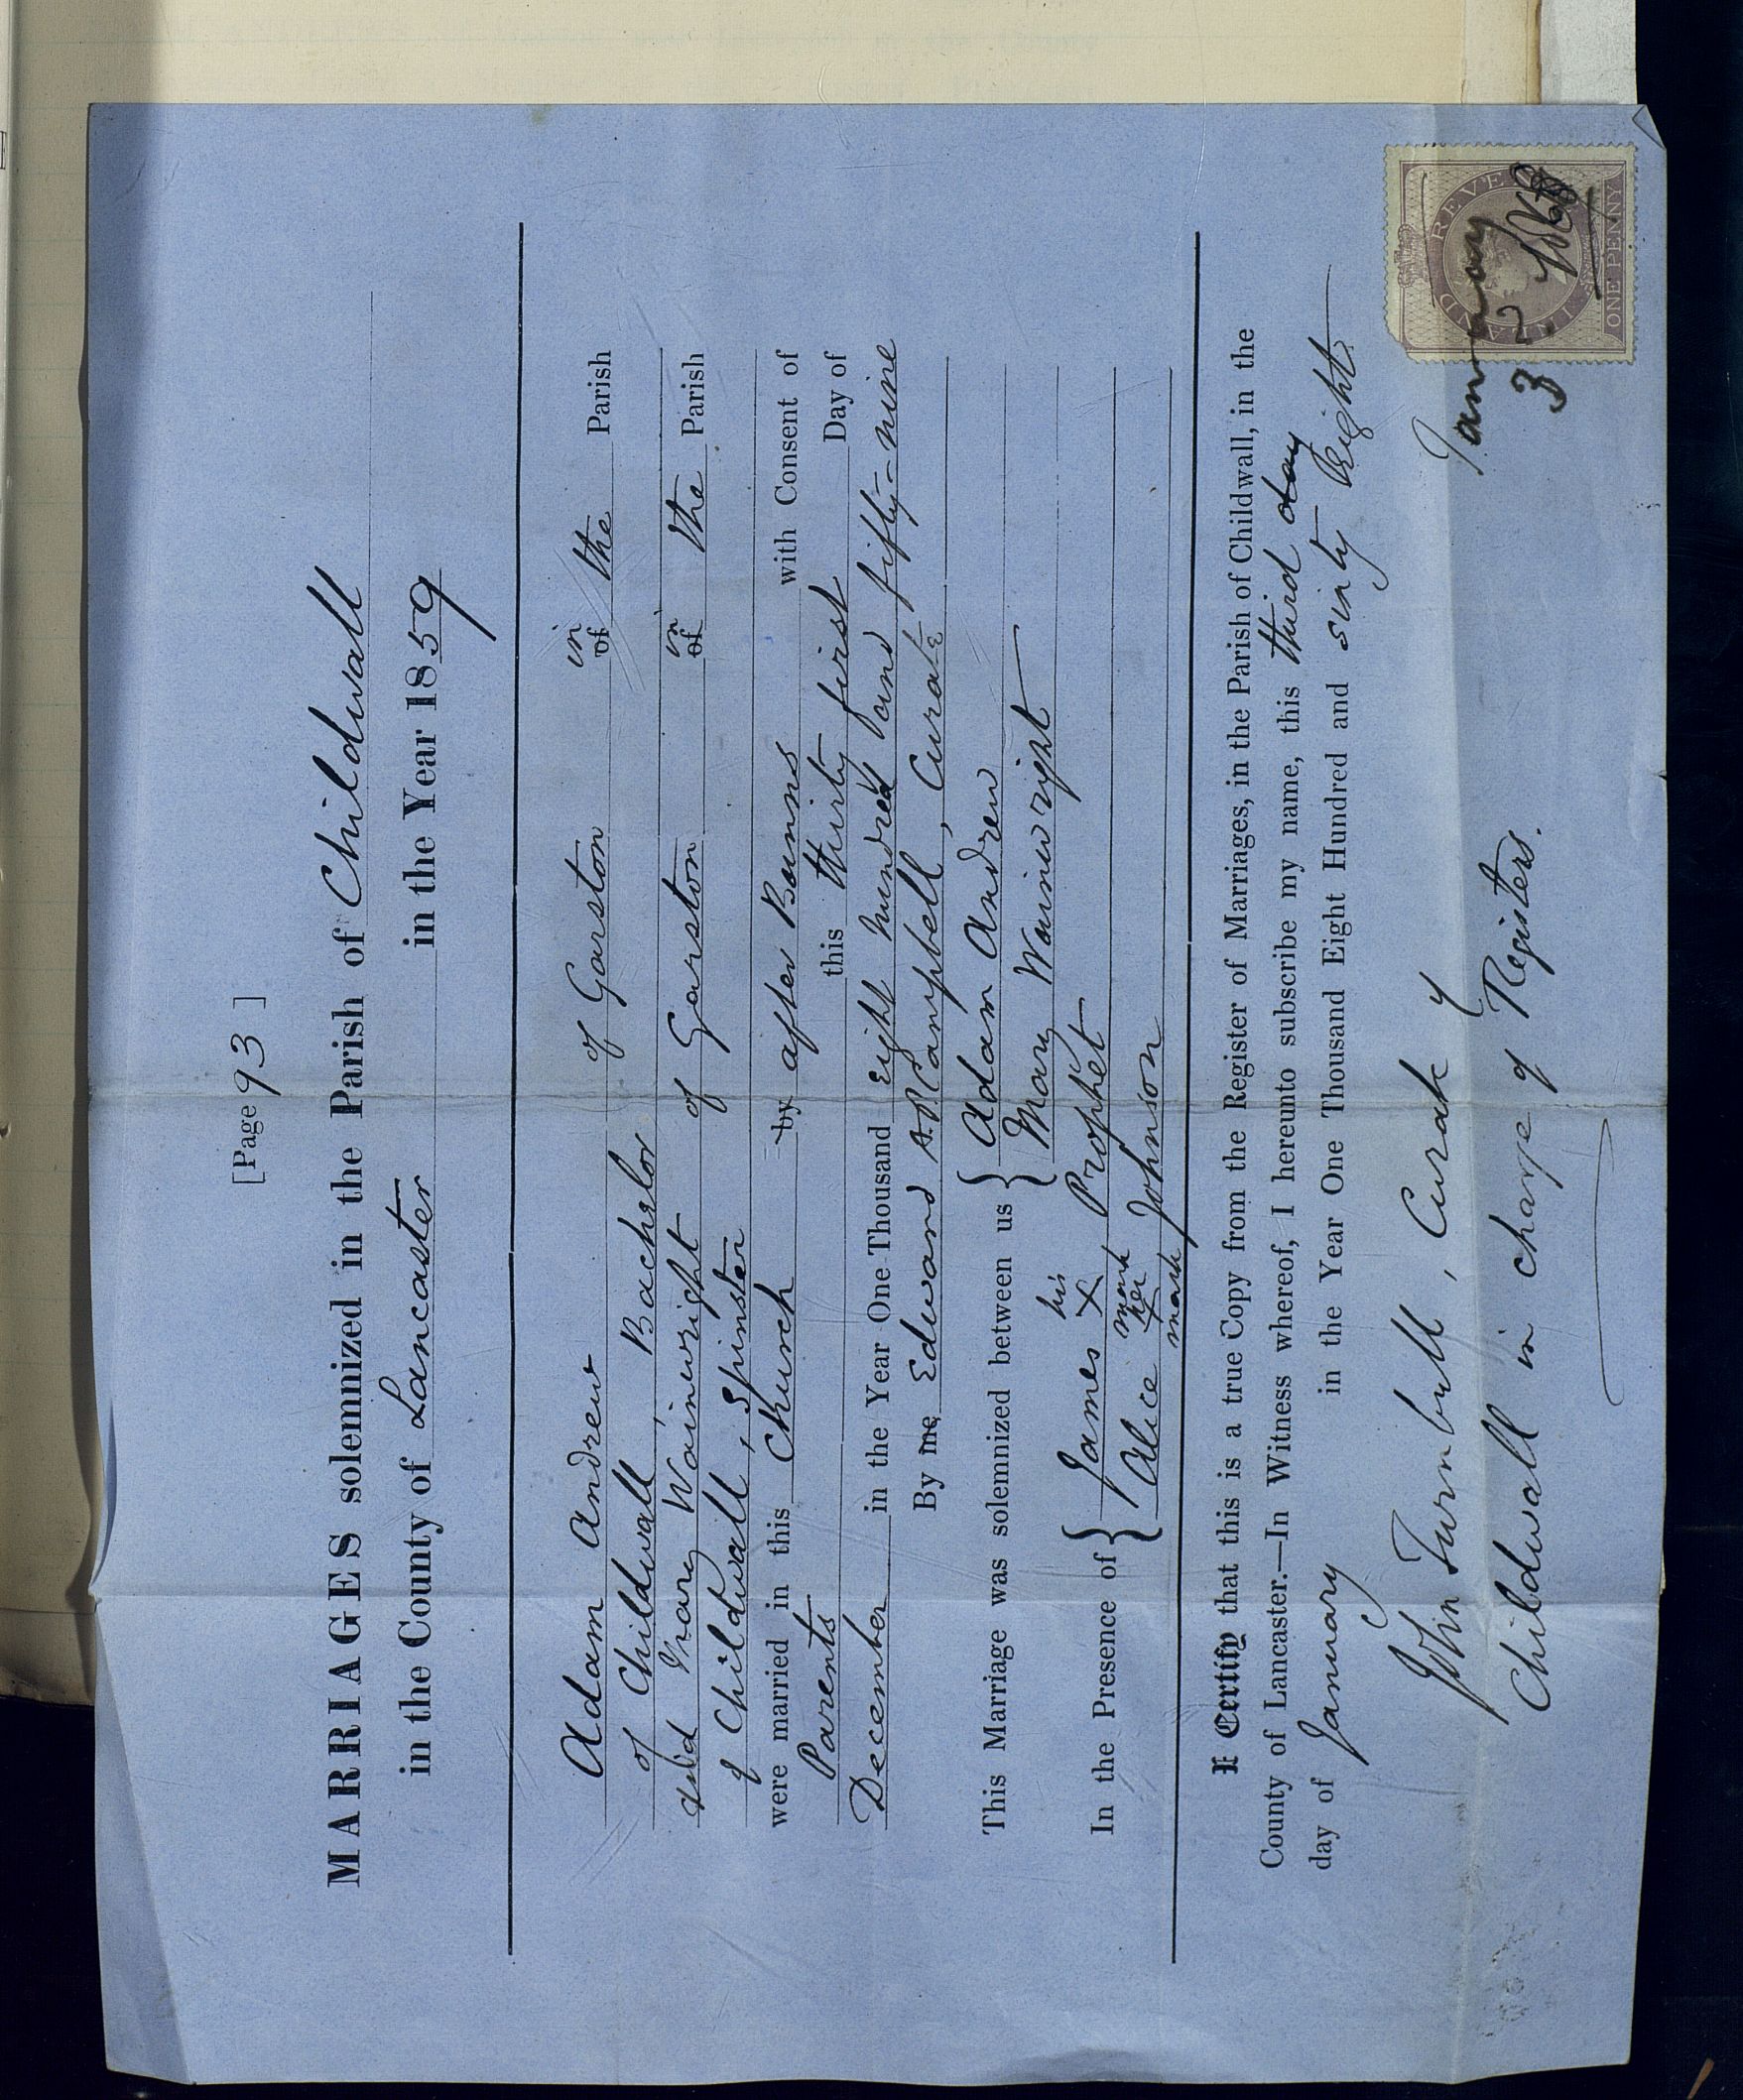 [Page 93 ]
MARRIAGES solemnized in the Parish of Childwall
in the County of Lancaster in the Year 1859
Adam Andrew of Garston of in the Parish
of Childwall, Bachelor
and Mary Wainwright of Garston of in the Parish
of Childwall, Spinster
were married in this Church by after Banns with Consent of
Parents this thirty first Day of
December in the Year One Thousand Eight hundred and fifty-nine
By me, Edward A. P. Campbell, Curate
This Marriage was solemnized between us { Adam Andrew
Mary Wainwright
In the Presence of { James his X mark Prophet
Alice her X mark Johnson
I Certify that this is a true Copy from the Register of Marriages, in the Parish of Childwall, in the
County of Lancaster.—In Witness whereof, I hereunto subscribe my name, this third day
day of January in the Year One Thousand Eight Hundred and sixty Eight
John Turnbull, Curate of
Childwall in charge of Registers.
January
3
INLAND REVENUE
ONE PENNY